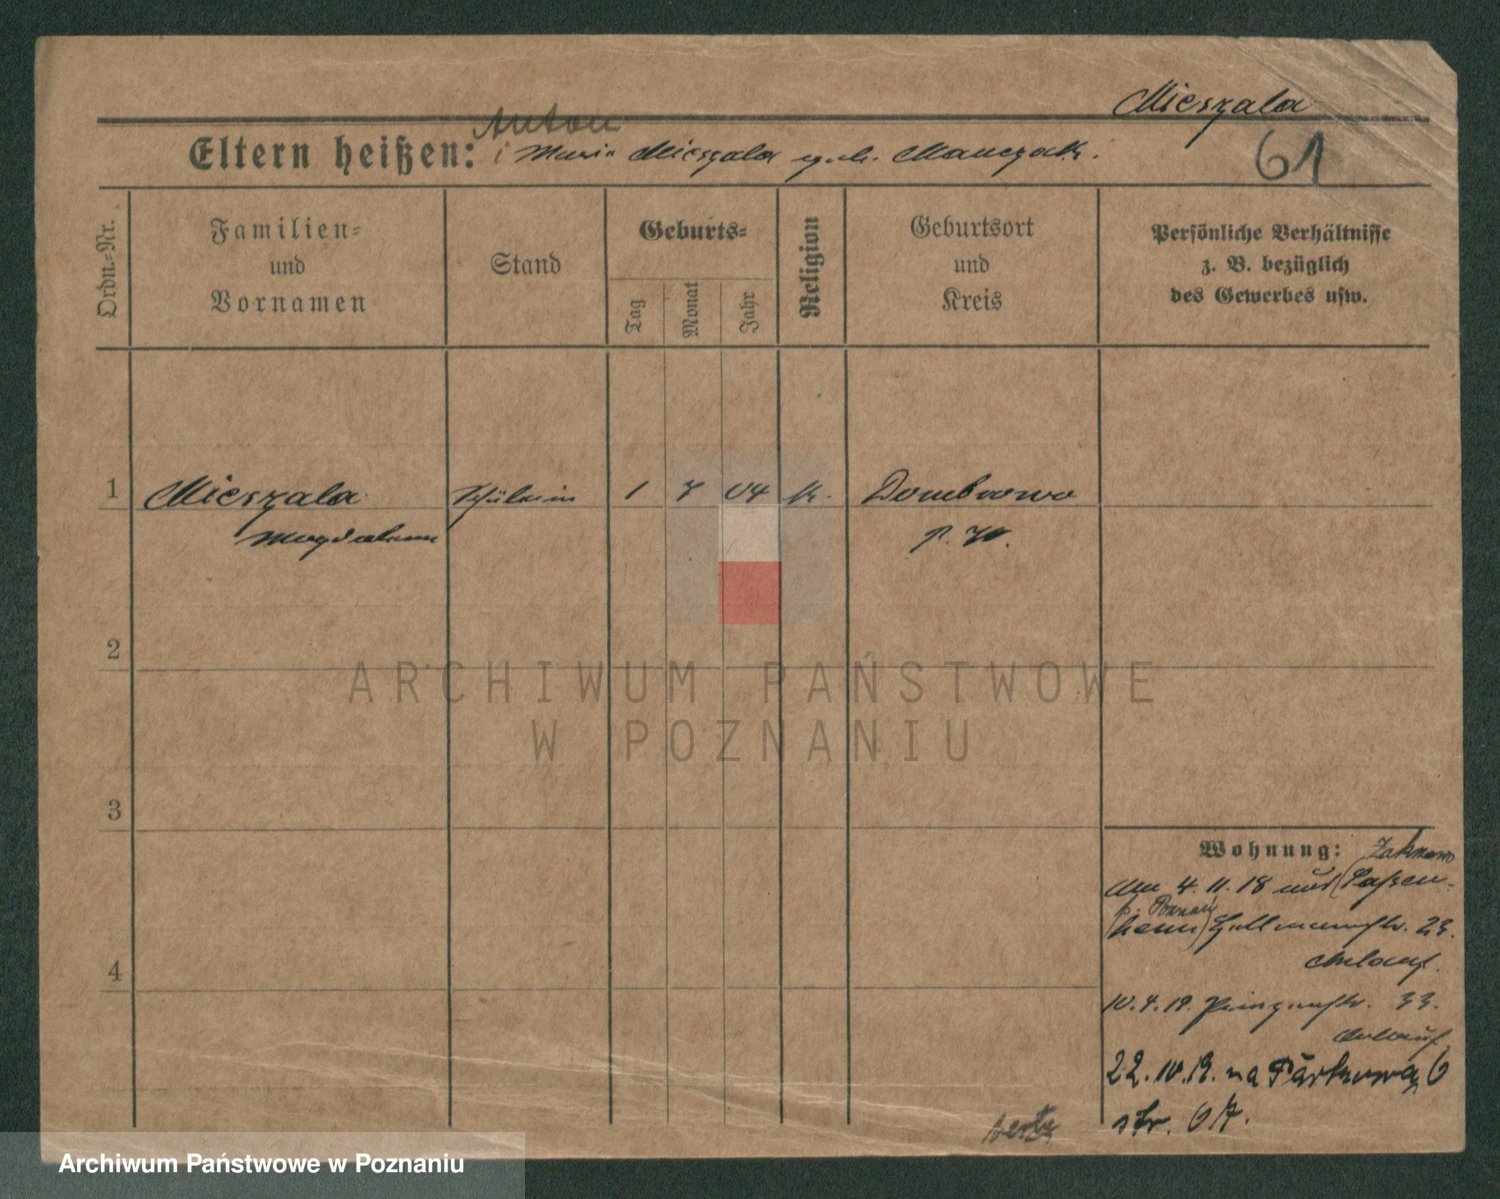 Mieszala
Anton
Eltern heißen: i Maria Mieszala geb. Manczak.
61
Ordn.-Nr.
Familien-
und
Vornamen
Stand
Geburts-
Tag
Monat
Jahr
Religion
Geburtsort
und
Kreis
Persönliche Verhältnisse
z. B. bezüglich
des Gewerbes usw.
1 Mieszala Schülerin 1 7 04 k. Dombrowo
Magdalena
2
3
4
Wohnung:
Am 4. 11. 18 aus
p. Poznań
23.
10. 4. 19. 33.
22. 10. 19. na Parkową 6
str.
ARCHIWUM PAŃSTWOWE
W POZNANIU
Archiwum Państwowe w Poznaniu